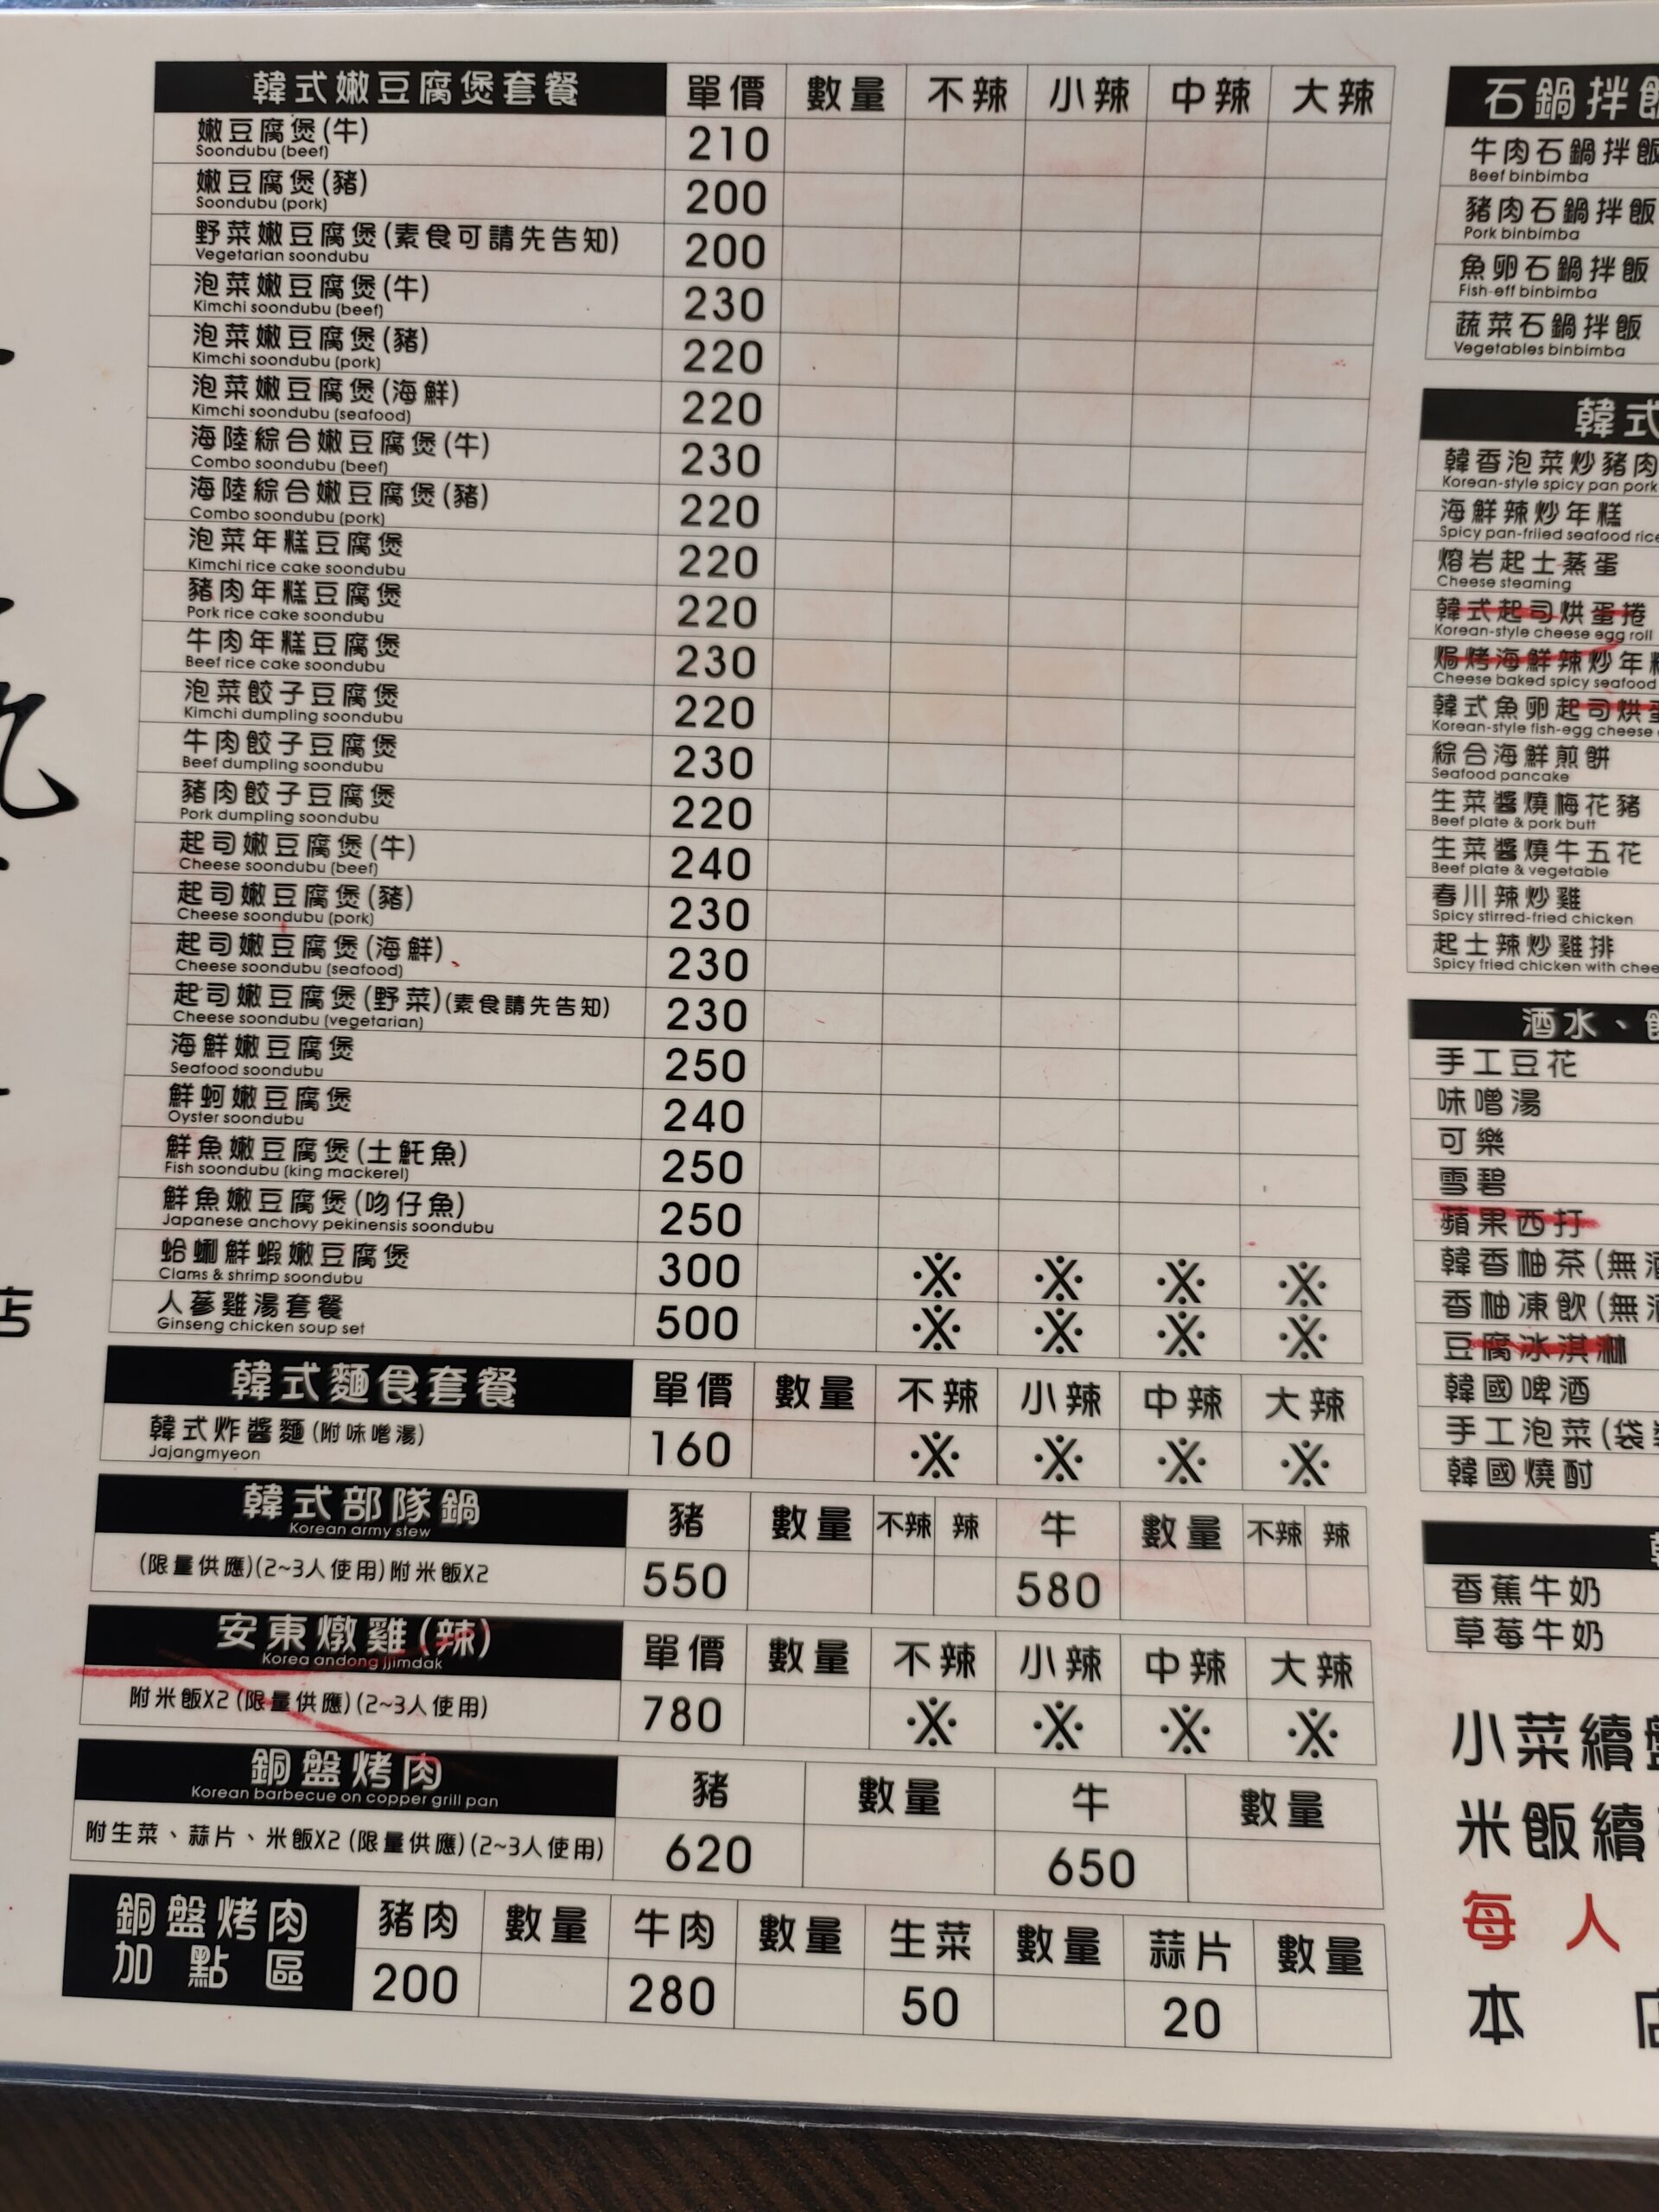 韓式嫩豆腐煲套餐 單價 數量 不辣 小辣 中辣 大辣
嫩豆腐煲(牛) 210
Soondubu (beef)
嫩豆腐煲(豬) 200
Soondubu (pork)
野菜嫩豆腐煲(素食可請先告知) 200
Vegetarian soondubu
泡菜嫩豆腐煲(牛) 230
Kimchi soondubu (beef)
泡菜嫩豆腐煲(豬) 220
Kimchi soondubu (pork)
泡菜嫩豆腐煲(海鮮) 220
Kimchi soondubu (seafood)
海陸綜合嫩豆腐煲(牛) 230
Combo soondubu (beef)
海陸綜合嫩豆腐煲(豬) 220
Combo soondubu (pork)
泡菜年糕豆腐煲 220
Kimchi rice cake soondubu
豬肉年糕豆腐煲 220
Pork rice cake soondubu
牛肉年糕豆腐煲 230
Beef rice cake soondubu
泡菜餃子豆腐煲 220
Kimchi dumpling soondubu
牛肉餃子豆腐煲 230
Beef dumpling soondubu
豬肉餃子豆腐煲 220
Pork dumpling soondubu
起司嫩豆腐煲(牛) 240
Cheese soondubu (beef)
起司嫩豆腐煲(豬) 230
Cheese soondubu (pork)
起司嫩豆腐煲(海鮮) 230
Cheese soondubu (seafood)
起司嫩豆腐煲(野菜)(素食請先告知) 230
Cheese soondubu (vegetarian)
海鮮嫩豆腐煲 250
Seafood soondubu
鮮蚵嫩豆腐煲 240
Oyster soondubu
鮮魚嫩豆腐煲(土魠魚) 250
Fish soondubu (king mackerel)
鮮魚嫩豆腐煲(吻仔魚) 250
Japanese anchovy pekinensis soondubu
蛤蜊鮮蝦嫩豆腐煲 300 ※ ※ ※ ※
Clams & shrimp soondubu
人蔘雞湯套餐 500 ※ ※ ※ ※
Ginseng chicken soup set
韓式麵食套餐 單價 數量 不辣 小辣 中辣 大辣
韓式炸醬麵(附味噌湯) 160 ※ ※ ※ ※
Jajangmyeon
韓式部隊鍋 豬 數量 不辣 辣 牛 數量 不辣 辣
Korean army stew
(限量供應)(2~3人使用)附米飯X2 550 580
安東燉雞(辣) 單價 數量 不辣 小辣 中辣 大辣
Korea andong jjimdak
附米飯X2(限量供應)(2~3人使用) 780 ※ ※ ※ ※
銅盤烤肉 豬 數量 牛 數量
Korean barbecue on copper grill pan
附生菜、蒜片、米飯X2(限量供應)(2~3人使用) 620 650
銅盤烤肉 豬肉 數量 牛肉 數量 生菜 數量 蒜片 數量
加點區 200 280 50 20
店
石鍋拌飯
牛肉石鍋拌飯
Beef binbimba
豬肉石鍋拌飯
Pork binbimba
魚卵石鍋拌飯
Fish-eff binbimba
蔬菜石鍋拌飯
Vegetables binbimba
韓式
韓香泡菜炒豬肉
Korean-style spicy pan pork
海鮮辣炒年糕
Spicy pan-friied seafood rice
熔岩起士蒸蛋
Cheese steaming
韓式起司烘蛋捲
Korean-style cheese egg roll
焗烤海鮮辣炒年糕
Cheese baked spicy seafood
韓式魚卵起司烘蛋
Korean-style fish-egg cheese
綜合海鮮煎餅
Seafood pancake
生菜醬燒梅花豬
Beef plate & pork butt
生菜醬燒牛五花
Beef plate & vegetable
春川辣炒雞
Spicy stirred-fried chicken
起士辣炒雞排
Spicy fried chicken with chee
酒水、飲
手工豆花
味噌湯
可樂
雪碧
蘋果西打
韓香柚茶(無酒
香柚凍飲(無酒
豆腐冰淇淋
韓國啤酒
手工泡菜(袋裝
韓國燒酎
香蕉牛奶
草莓牛奶
小菜續盤
米飯續
每人
本店